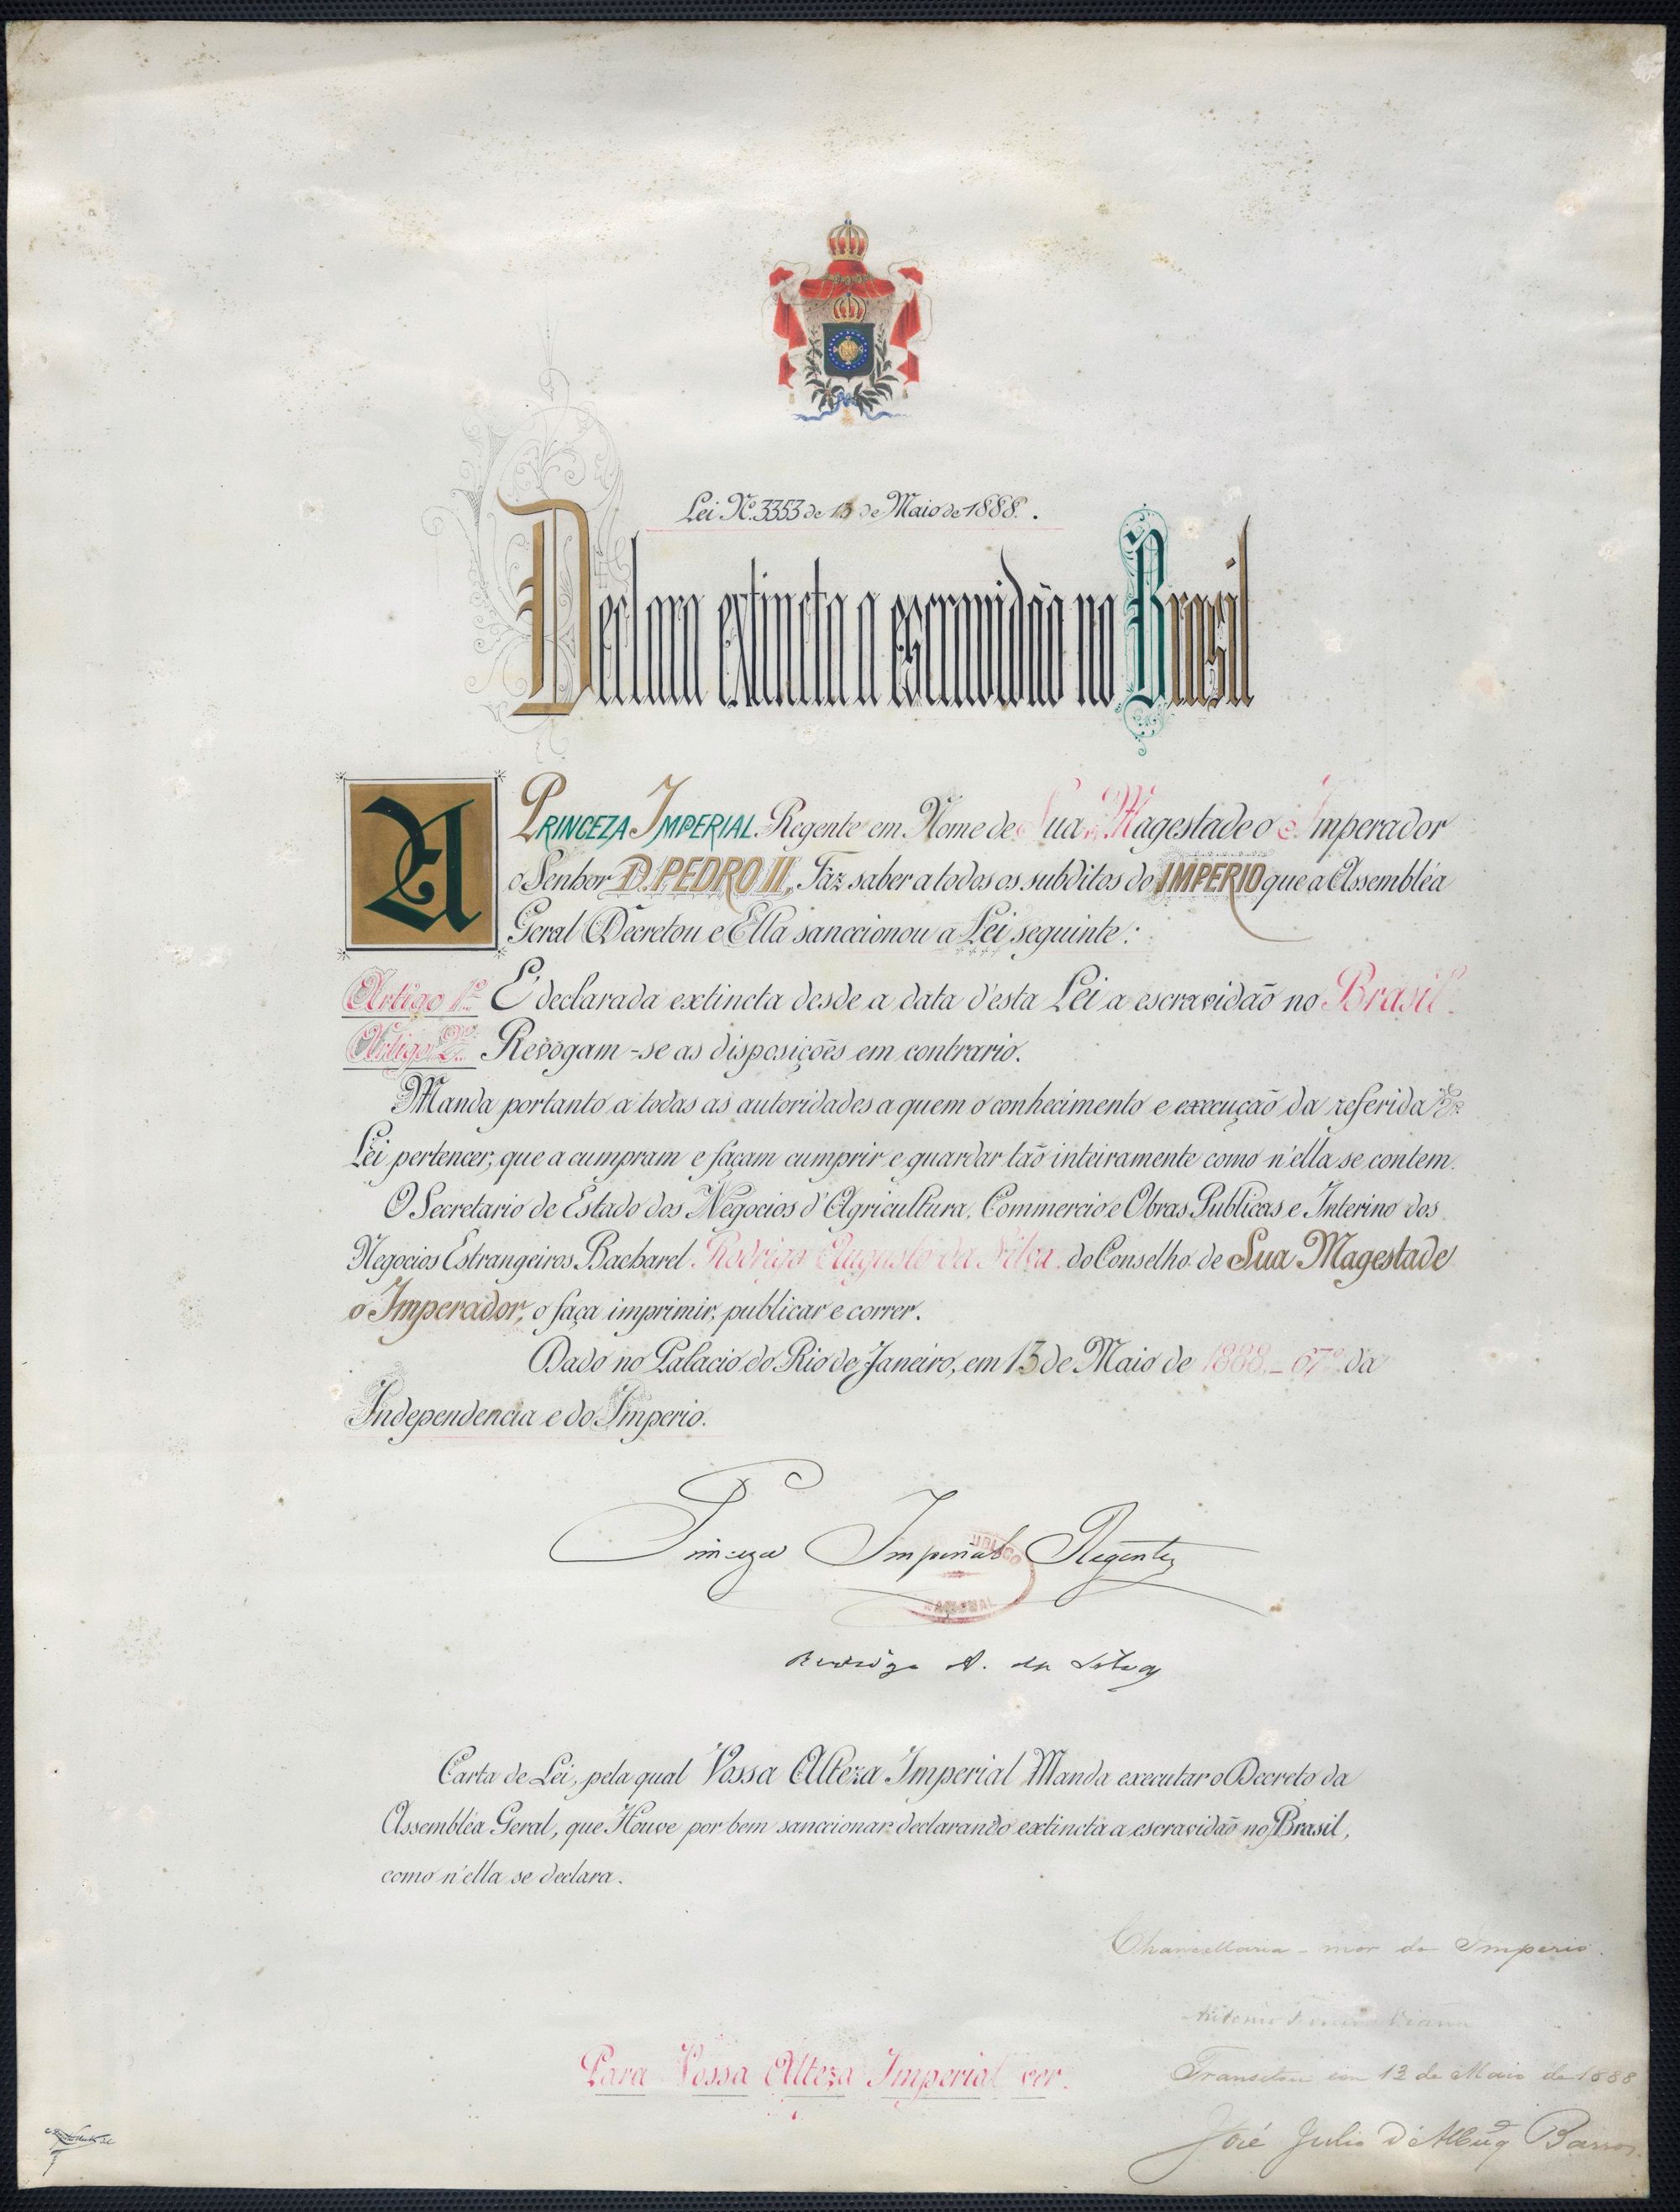 Lei Nº. 3353 de 13 de Maio de 1888.
Declara extincta a escravidão no Brasil
A PRINCEZA IMPERIAL Regente em Nome de Sua Magestade o Imperador
o Senhor D. PEDRO II, Faz saber a todos os subditos do IMPERIO que a Assembléa
Geral Decretou e Ella sanccionou a Lei seguinte:
Artigo 1º. É declarada extincta desde a data d'esta Lei a escravidão no Brasil.
Artigo 2º. Revogam-se as disposições em contrario.
Manda portanto a todas as autoridades a quem o conhecimento e execução da referida
Lei pertencer, que a cumpram e façam cumprir e guardar tão inteiramente como n'ella se contem.
O Secretario de Estado dos Negocios d'Agricultura, Commercio e Obras Publicas e Interino dos
Negocios Estrangeiros Bacharel Rodrigo Augusto da Silva do Conselho de Sua Magestade
o Imperador, o faça imprimir, publicar e correr.
Dado no Palacio do Rio de Janeiro, em 13 de Maio de 1888. - 67º da
Independencia e do Imperio.
Princeza Imperial Regente
Rodrigo A. da Silva
Carta de Lei, pela qual Vossa Alteza Imperial Manda executar o Decreto da
Assembléa Geral, que Houve por bem sanccionar declarando extincta a escravidão no Brasil,
como n'ella se declara.
Chancellaria-mor do Imperio.
Antonio Viana
Para Vossa Alteza Imperial ver.
Transitou em 13 de Maio de 1888
José Julio d'Albuq Barros